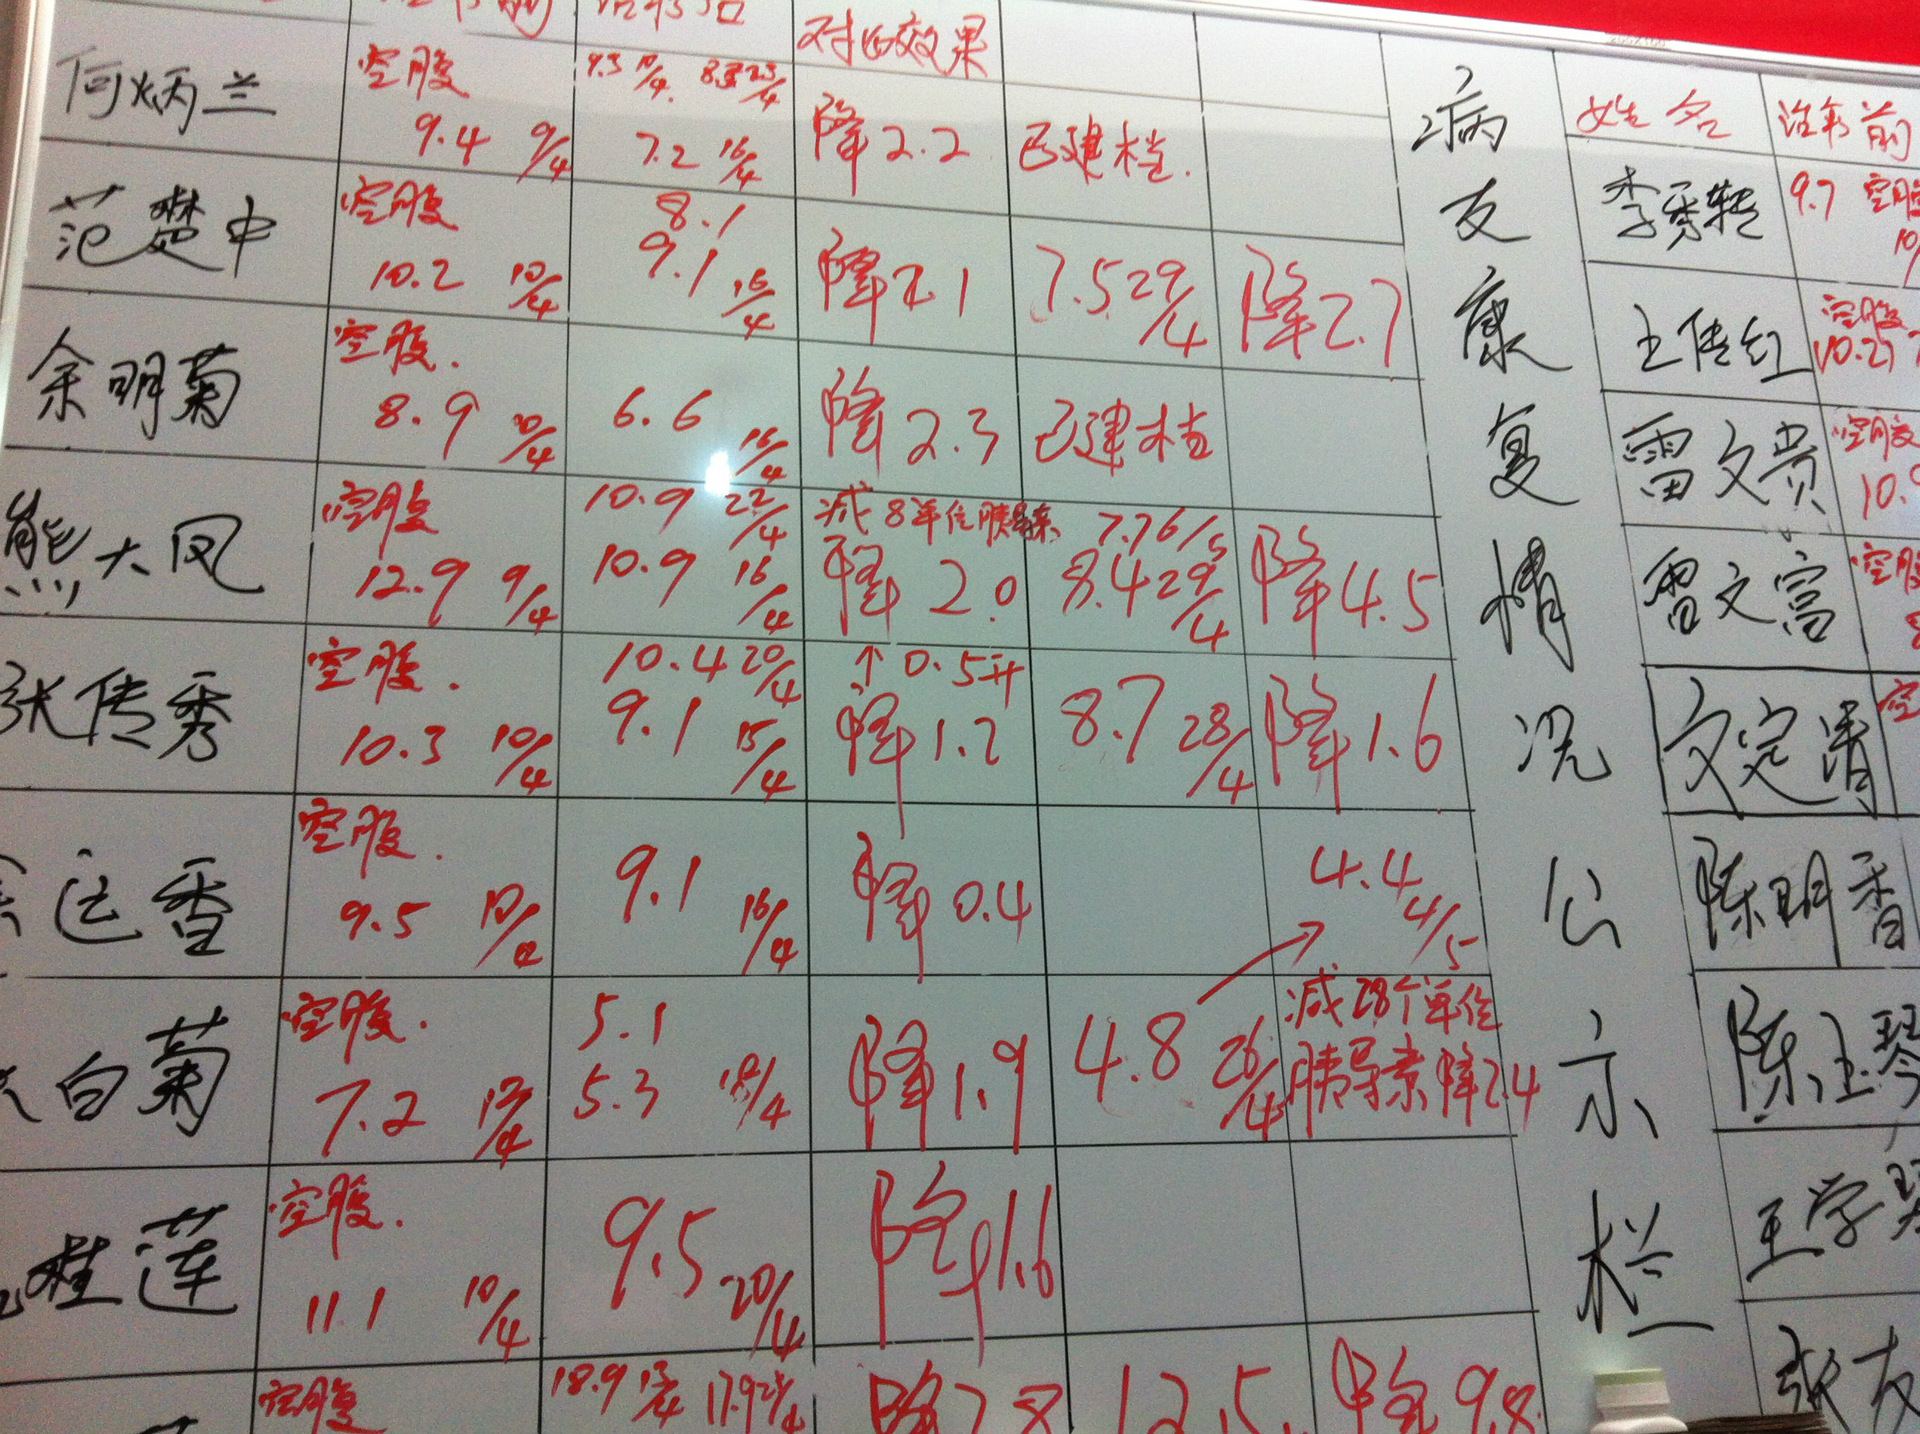 对比效果
何炳兰 空腹 9.3 10/4 8.3 23/4
9.4 9/4 7.2 16/4 降2.2 已建档.
范楚中 空腹 8.1
10.2 10/4 9.1 16/4 降2.1 7.5 29/4 降2.7
余明菊 空腹.
8.9 10/4 6.6 16/4 降2.3 已建档
熊大凤 空腹 10.9 22/4 减8单位胰导素 7.7 6/5
12.9 9/4 10.9 16/4 降2.0 8.4 29/4 降4.5
张传秀 空腹. 10.4 20/4 ↑0.5升
10.3 10/4 9.1 15/4 降1.2 8.7 28/4 降1.6
运香 空腹.
9.5 10/4 9.1 16/4 降0.4
白菊 空腹. 5.1 4.4 4/5
7.2 5.3 18/4 降1.9 4.8 26/4 减28个单位
胰导素降2.4
桂莲 空腹.
11.1 10/4 9.5 20/4 降1.6
空腹 18.9 降7.8 12.5. 降9.8
病友康复情况公示栏
姓名 治疗前
李秀转 9.7 空腹
王传红 空腹
10.2
雷文贵 空腹
雷文富 空腹
文定清 空
陈明香
陈玉琴
王学琴
张友